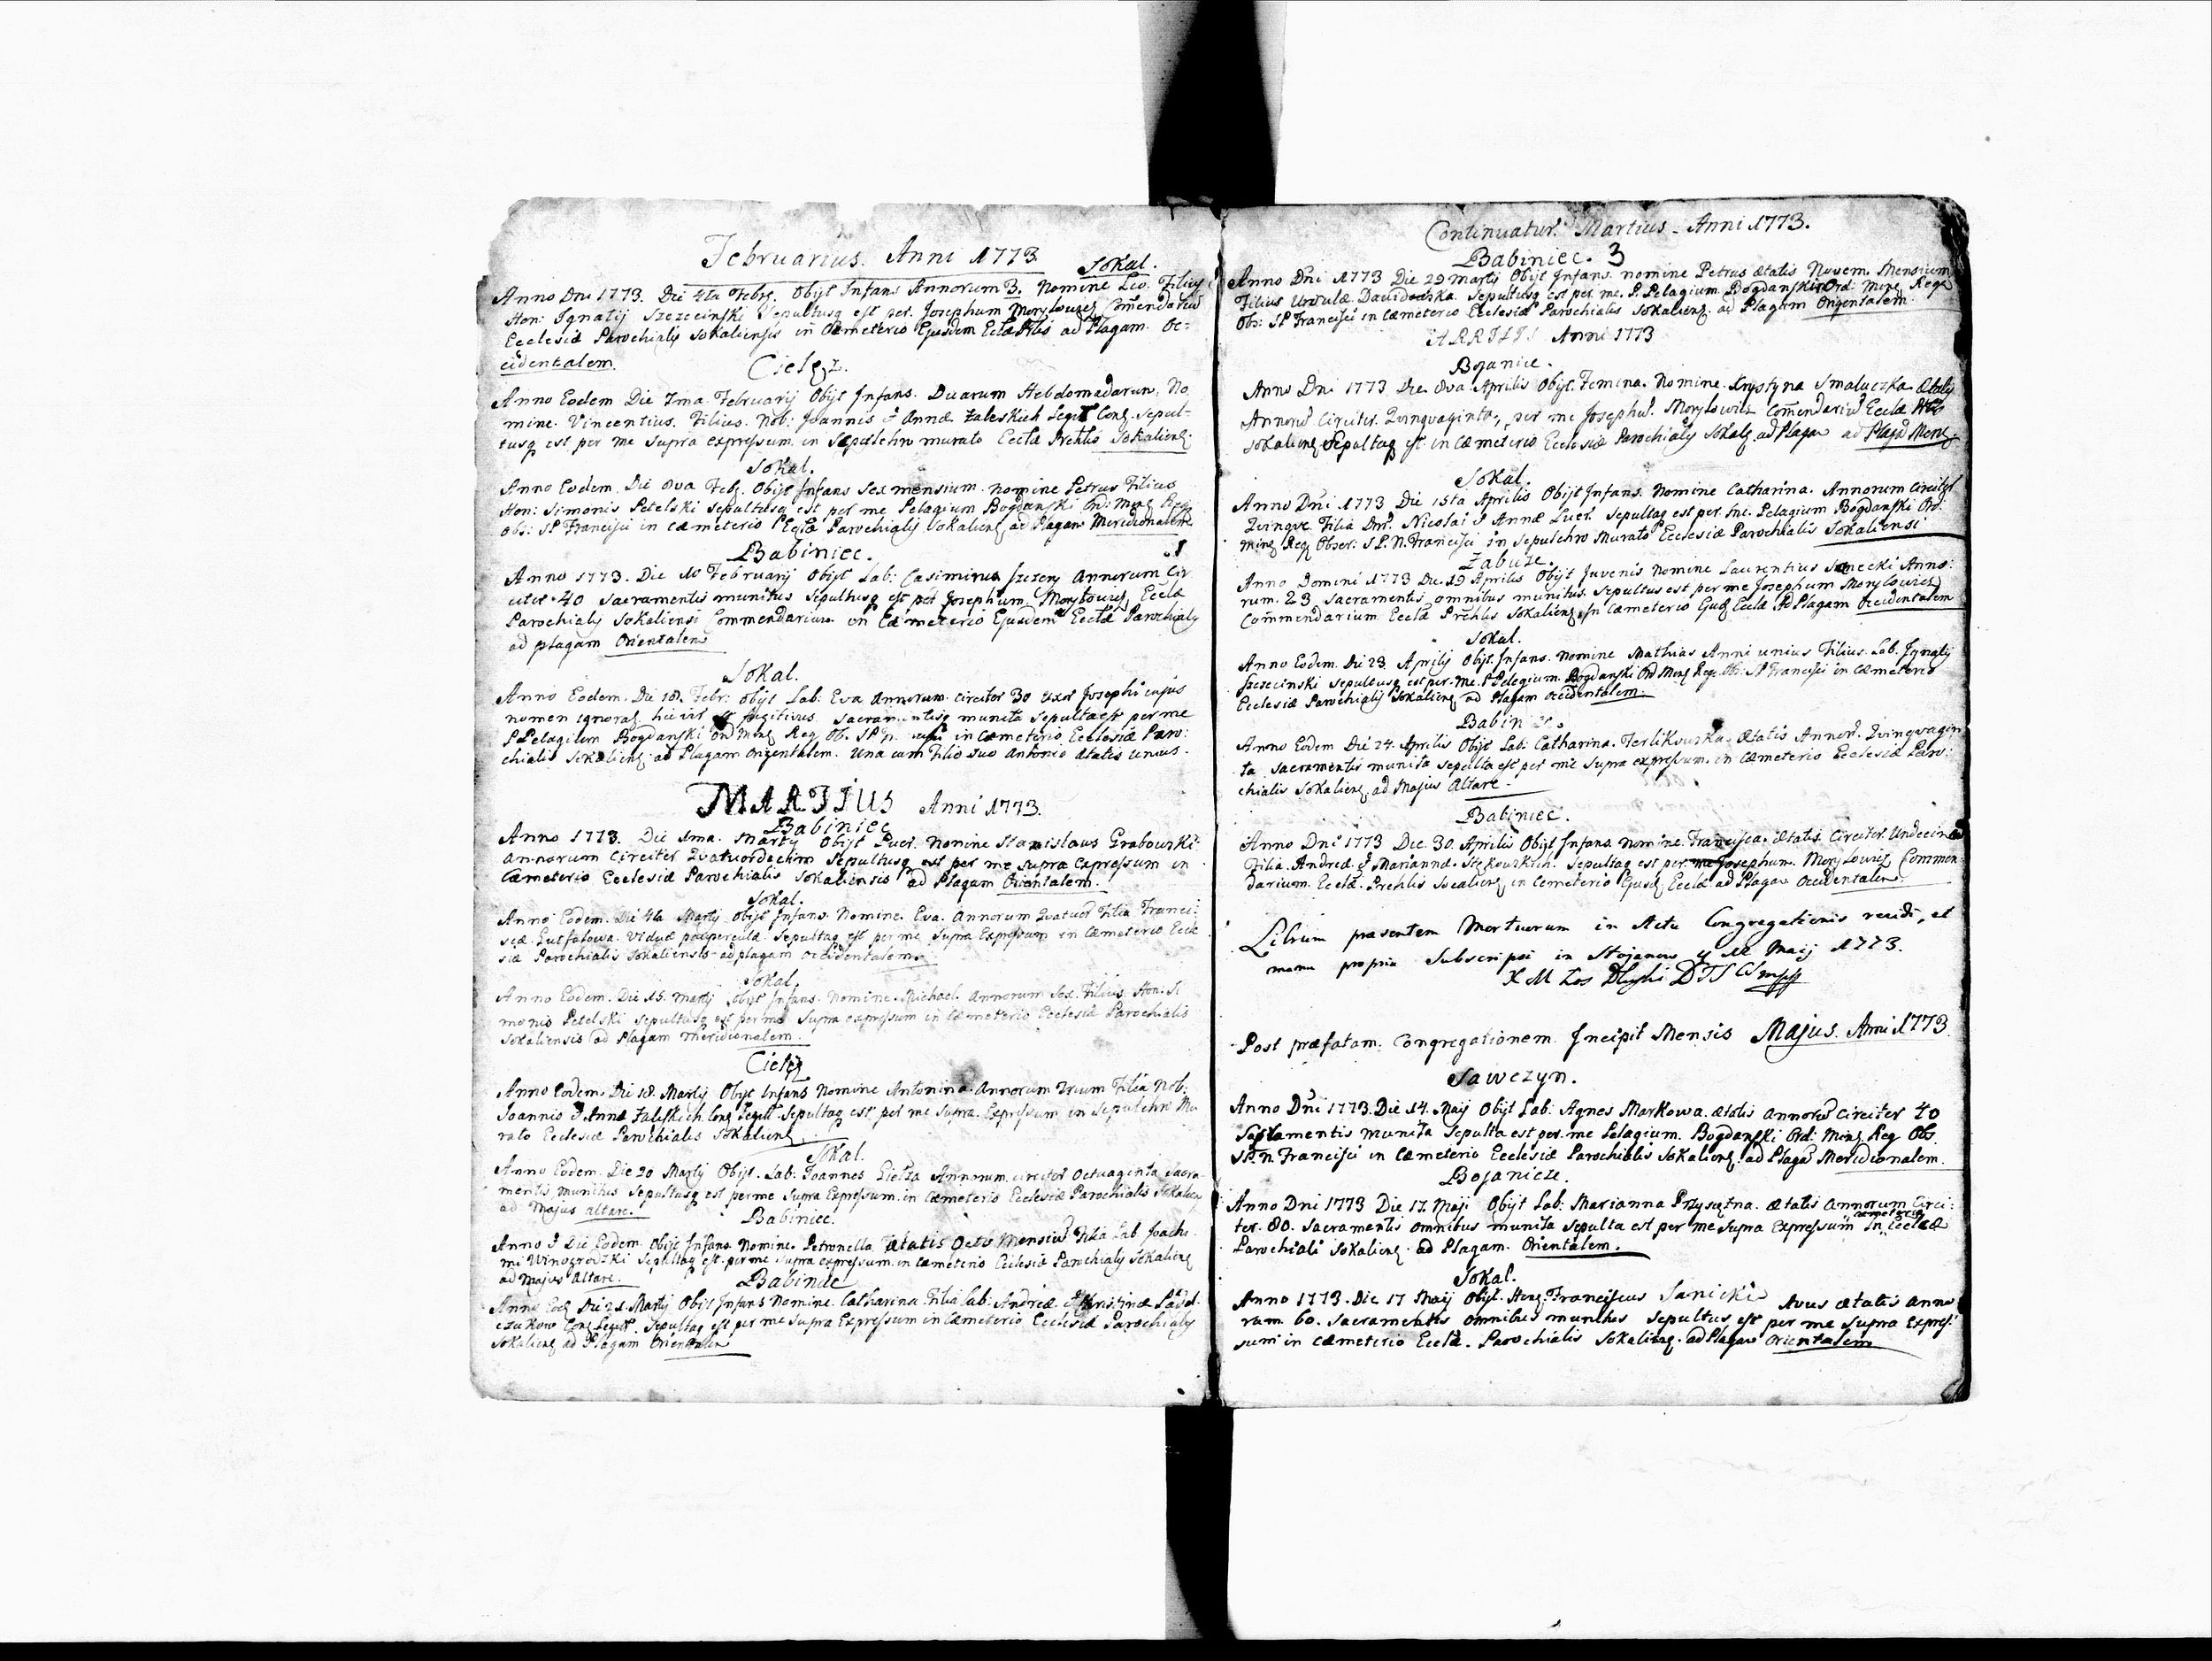 Februarius. Anni 1773
Sokal.
Anno Dni 1773. Die 4ta Febr. Obijt Infans Annorum 3. Nomine Leo. Filius
Hon: Ignatij Szczecinski Sepultusq est per. Josephum Morylowicz Comendarium
Ecclesiæ Parochialis Sokaliensis in Cæmeterio Ejusdem Eclæ Prlis ad Plagam. Oc=
cidentalem.
Cielęz.
Anno Eodem Die 7ma Februarij Obijt Infans. Duarum Hebdomadarum. No
mine. Vincentius. Filius. Nob: Joannis & Annæ Zaleskich Legit Conj. Sepul-
tusq est per me Supra expressum. in Sepulchro murato Ecclæ Prchlis Sokaliens:
Sokal.
Anno Eodem. Die 8va Feb. Obijt Infans Sex mensium. nomine Petrus Filius
Hon: Simonis Petelski sepultusq est per me Pelagium Bogdanski Ord: Min: Reg:
Obs: S.P. Francisci in cæmeterio Eccla Parochialis Sokaliens ad Plagam Meridionalem
Babiniec.
Anno 1773. Die 10 Februarij Obijt Lab: Casimirus Szczery Annorum Cir
citer 40 Sacramentis munitus Sepultusq est per Josephum. Morylowicz, Ecclæ
Parochialis Sokaliensi Commendarium in Cæmeterio Ejusdem Ecclæ Parochialis
ad plagam Orientalem
Sokal.
Anno Eodem. Die 18. Febr: obijt Lab. Eva Annorum. circiter 30 uxor Josephi cujus
nomen ignorat. hic vir fugitivus sacramentisq munita Sepulta est per me
P Pelagium Bogdanski Ord Min: Reg Ob. S P. in Cæmeterio Ecclesiæ Paro:
chialis Sokaliens: ad Plagam Orientalem. Una cum Filio suo Antonio ætatis unius.
MARTIUS Anni 1773.
Babiniec
Anno 1773. Die 1ma. Martij Obijt Puer. Nomine Stanislaus Grabowski
annorum Circiter Quatuordecim Sepultusq est per me supra Expressum in
Cæmeterio Ecclesiæ Parochialis Sokaliensis ad Plagam Orientalem.
Sokal.
Anno Eodem. Die 4ta Martij Obijt Infans. Nomine. Eva. Annorum Quatuor Filia Franci:
scæ. viduæ pauperculæ. Sepultaq est per me Supra Expressum in Cæmeterio Eccle
siæ Parochialis Sokaliensis ad plagam occidentalem.
Sokal.
Anno Eodem. Die 15. Martij obijt Infans. Nomine. Michael. Annorum Sex. Filius. Hon: Si
monis Petelski sepultusq est per me Supra expressum in Cæmeterio Ecclesiæ Parochialis
Sokaliensis ad Plagam Meridionalem.
Cielęz
Anno Eodem. Die 18. Martij Obijt Infans Nomine Antonina. Annorum Trium Filia Nob:
Joannis & Annæ Zaleskich. Conj Legit. Sepultaq est per me Supra. Expressum in Sepulchro Mu
rato Ecclesiæ Parochialis Sokaliens.
Sokal.
Anno Eodem. Die 20 Martij Obijt. Lab: Joannes Annorum circiter Octuaginta Sacra-
mentis munitus Sepultusq est per me Supra Expressum. in Cæmeterio Ecclesiæ Parochialis Sokaliens
ad Majus altare.
Babiniec.
Anno & Die Eodem Obijt Infans. Nomine. Petronella Ætatis Octo Mensium Filia Lab Joachi
mi Winogrodzki Sepultaq est per me Supra expressum. in Cæmeterio Ecclesiæ Parochialis Sokaliens
ad Majus Altare.
Babiniec
Anno Eod. Die 21. Martij Obijt Infans Nomine. Catharina Filia Lab: Andreæ & Christinæ
Conj Legit. Sepultaq est per me Supra Expressum in Cæmeterio Ecclesiæ Parochialis
Sokaliens ad Plagam Orientalem
Continuatur. Martius Anni 1773.
Babiniec. 3
Anno Dni 1773 Die 29 Martij Obijt Infans. nomine Petrus ætatis Novem Mensium
Filius Ursulæ Dawidowska. Sepultusq est per me. P. Pelagium. Bogdanski Ord: Min: Reg:
Obs: S.P Francisci in Cæmeterio Ecclesiæ Parochialis Sokaliens. ad Plagam Orientalem.
APRILIS Anni 1773
Bojanice.
Anno Dni 1773 Die 8va Aprilis Obijt. Femina. Nomine. Krystyna Smaluczka Ætatis
Annorum Circiter. Quinquaginta, per me Josephum. Morylowicz Comendarium Ecclæ
Sokaliens Sepultaq est. in Cæmeterio Ecclesiæ Parochialis Sokal ad Plagam ad Plagam Meri
Sokal.
Anno Dni 1773 Die 15ta Aprilis Obijt Infans. Nomine Catharina. Annorum Circiter
Quinque Filia Nicolai & Annæ Sepultaq est per. me. Pelagium Bogdanski Ord.
Min: Reg Obser: S.P. N. Francisci in Sepulchro Murato Ecclesiæ Parochialis Sokaliensi
Zabuże.
Anno Domini 1773 Die 19 Aprilis Obijt Juvenis Nomine Laurentius Anno:
rum. 23 Sacramentis omnibus munitus. Sepultus est per me Josephum Morylowicz
Commendarium Ecclæ Prchlis Sokaliens, In Cæmeterio Ejusd Ecclæ Ad Plagam Occidentalem
Sokal.
Anno Eodem. Die 23 Aprilis Obijt. Infans. Nomine Mathias Anni unius Filius. Lab. Ignatij
Szczecinski sepultusq est per. me. P Pelagium. Bogdanski Ord Min: Reg. Ob: S.P Francisci in Cæmeterio
Ecclesiæ Parochialis Sokaliens ad Plagam occidentalem.
Babiniec.
Anno Eodem Die 24. Aprilis Obijt Lab: Catharina. Terlikowska. ætatis Annor. Quinquagin
ta Sacramentis munita Sepulta est per me Supra expressum. in Cæmeterio Ecclesiæ Paro:
chialis Sokaliens ad Majus Altare.
Babiniec.
Anno Dni 1773 Die. 30. Aprilis Obijt Infans Nomine. Francisca. Ætatis. Circiter. Undecim
Filia. Andreæ & Mariannæ. Sepultaq est per. me Josephum. Morylowicz Commen-
darium. Ecclæ. Prchlis Socaliens in Cemeterio Ejusd Ecclæ ad Plagam Occidentalem.
Librum præsentem Mortuorum in Actu Congregationis revidi, et
manu propria Subscripsi in Stojanow Maij 1773.
Post præfatam. Congregationem Incipit Mensis Majus. Anni 1773
Sawczyn.
Anno Dni 1773. Die 14. Maij Obijt Lab: Agnes Markowa. ætatis annorum circiter 40
Sacramentis munita Sepulta est per. me Pelagium. Bogdanski Ord: Min: Reg Obs.
S.P.N. Francisci in Cæmeterio Ecclesiæ Parochialis Sokaliens. ad Plagam Meridionalem.
Bojanice.
Anno Dni 1773 Die 17. Maji Obijt Lab: Marianna Przysiężna. ætatis annorum Circi:
ter. 80. Sacramentis omnibus munita Sepulta est per me Supra Expressum In cæmeterio Ecclæ
Parochiali Sokaliens. ad Plagam. Orientalem.
Sokal.
Anno 1773. Die 17 Maij Obijt. Hon: Franciscus Sanicki Avus ætatis anno
rum 60. Sacramentis omnibus munitus Sepultus est per me Supra expres:
sum in Cæmeterio Ecclæ. Parochialis Sokaliens. ad Plagam Orientalem